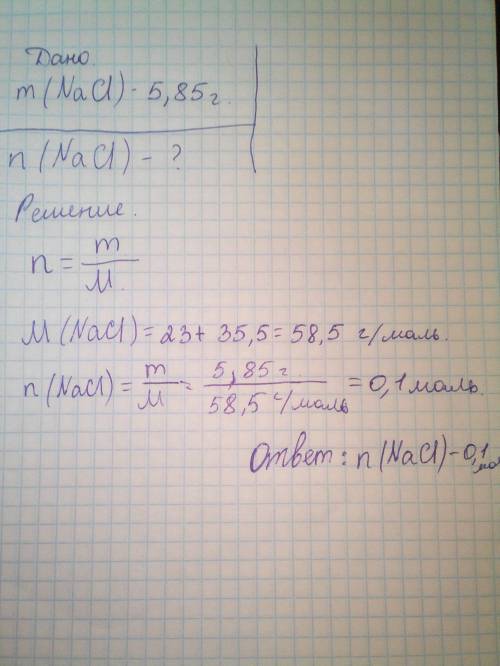 Дано.
m(NaCl) - 5,85г.
n(NaCl) - ?
Решение.
n = m/M.
M(NaCl) = 23 + 35,5 = 58,5 г/маль.
n(NaCl) = m/M = 5,85г./58,5 г/маль = 0,1 маль.
Ответ: n(NaCl) - 0,1